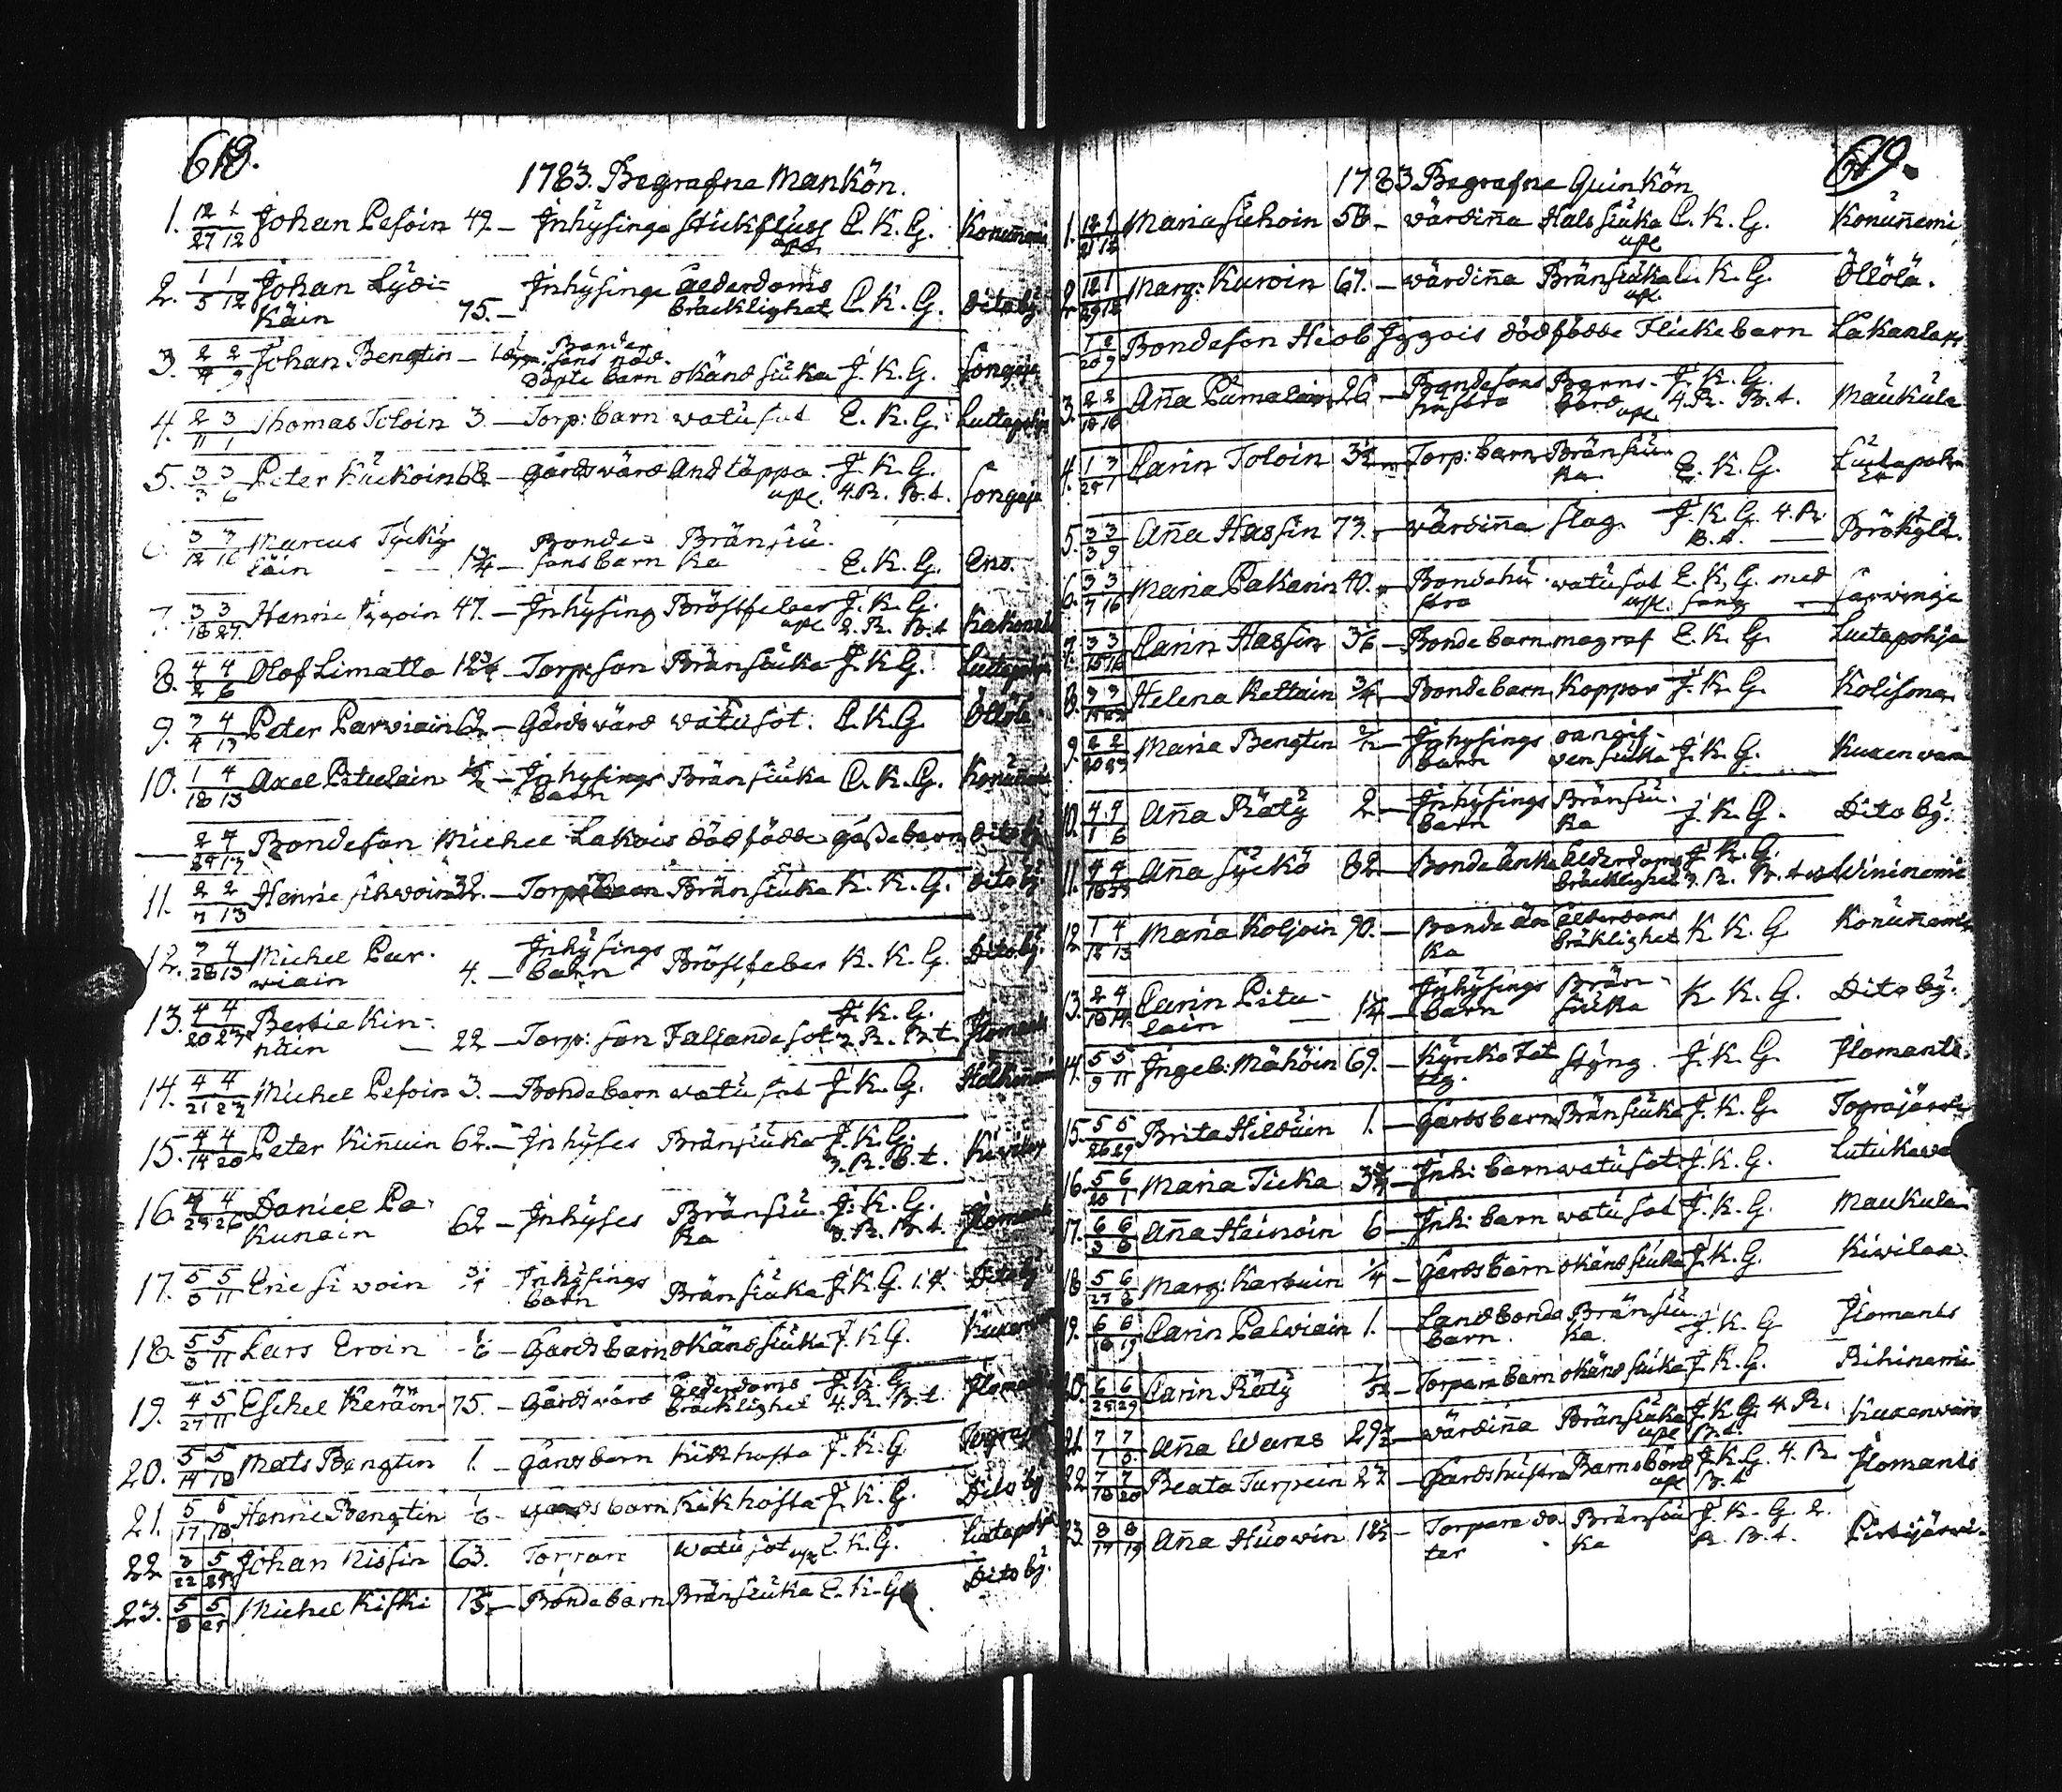 618.
1783. Begrafne Mankön.
1. 12/27 1/12 Johan Pesoin 49 – Inhysinge Stickfluss E. K. G. Konunnemi
2. 1/5 1/12 Johan Lydi- Inhysings ålderdoms
käin 75. – bräcklighet E. K. G. Dito by
3. 2/4 2/9 Johan Bengtin – Bonde
sons nöd
döpte barn okänd siuka J. K. G. Songaja
4. 2/11 3/1 Thomas Toloin 3. – Torp: barn watusot E. K. G. Lutapohja
5. 3/3 3/6 Peter Kuckoin 68 – Gårdswärd Andtäppa J. K. G.
upl. 4. R. B. t. Songaja
3/12 3/16 Marcus Tycky- Bonde- Bränsiu-
läin – sons barn ka E. K. G. Eno.
7. 3/18 3/27 Henric Iggoin 47. – Inhysing Bröstfeber J. K. G.
upl. 2. R. B. t
8. 4/2 4/6 Olof Limatta 12 3/4 – Torp: son Bränsiuka J. K. G. Lutapohja
9. 3/4 4/13 Peter Parwiain 62 – Gårdswärd watusot. E. K. G. Öllölä
10. 1/18 4/13 Axel Pitulain – Inhysings Bränsiuka E. K. G. Konunnemi
barn
— 2/24 4/13 Bondeson Michel Lakois dödfödde gossebarn Dito by
11. 2/7 2/13 Henric Sihwoin 32. – Bränsiuka K. K. G. Dito by
12. 3/28 4/13 Michel Par- Inhysings
wiain 4. – barn Bröstfeber K. K. G. Dito by.
13. 4/20 4/27 Bertie Kin- J. K. G.
nuin — 22 – Torp: son Fallandesot 2. R. B. t. Ilomants
14. 4/21 4/27 Michel Pesoin 3. – Bondebarn watusot J. K. G.
15. 4/14 4/20 Peter Kinnuin 62. – Inhyses Bränsiuka J. K. G.
3. R. B. t. Kivilax
16. 4/25 4/26 Daniel Pa- Bränsiu- J. K. G.
kunain 62 – Inhyses ka 3. R. B. t. Ilomants
17. 5/3 5/11 Eric Siwoin 3/4 – Inhysings
barn Bränsiuka J. K. G. Dito by
18. 5/3 5/11 Lars Eroin 1/6 – Gårdsbarn okänd siuka J. K. G. Kuxenwara
19. 4/27 5/11 Eskel Keräin 75. – Gårdswärd ålderdoms J. K. G.
bräcklighet 4. R. B. t. Ilomants
20. 5/14 5/18 Mats Bengtin 1. – Gårdsbarn kikhosta J. K. G.
21. 5/17 5/18 Henric Bengtin 1/6 – Gårdsbarn kikhosta J. K. G. Dito by
22. 3/22 5/25 Johan Nissin 63. Torpare watusot upl. E. K. G. Lutapohja
23. 5/8 5/25 Michel Kiski – Bondebarn Bränsiuka E. K. G. Dito by.
619.
1783. Begrafne Quinkön
1. 12/21 1/12 Maria Sichoin 58 – wärdinna Halssiuka E. K. G. Konunnemi
upl.
2. 12/29 1/12 Marg: Kurvin 67. – wärdinna Bränsiuka E. K. G. Öllölä.
upl.
— 1/20 2/9 Bondeson Hiob Iggois dödfödde Flickebarn
3. 2/12 2/16 Anna Pumalain 26 – Bondesons Barns- J. K. G.
hustro börd upl. 4. R. B. t. Maukula
4. 1/29 3/1 Carin Toloin 3 1/2 – Torp: barn Bränsiu-
ka E. K. G. Lutapohja
5. 3/3 3/9 Anna Hassin 73. – wärdinna slag. J. K. G. 4. R.
B. t. — Brökylä.
6. 3/7 3/16 Maria Pakarin 40. – Bondehu- watusot E. K. G. med
stro upl. sång – Sarwinge
7. 3/15 3/16 Carin Hassin – Bondebarn magref E. K. G. Lutapohja
8. 3/19 3/23 Helena Rattain 3/4 – Bondebarn Koppor J. K. G. Kolisoma
9. 2/20 2/23 Maria Bengtin – Inhysings oangif-
barn ven siuka J. K. G. Kuxenwara
10. 4/1 4/6 Anna Räty 2. – Inhysings Bränsiu-
barn ka J. K. G. Dito by.
11. 4/18 4/23 Anna Syckö 82. – Bondeänka ålderdoms J. K. G.
bräcklighet 3. R. B. t.
12. 1/12 4/13 Maria Koljoin 90. – Bondeän- ålderdoms
ka bräklighet K. K. G. Konunnemi
13. 2/18 4/14 Carin Pitu- Inhysings Brän-
lain — 1 1/4 – barn siuka K. K. G. Dito by.
14. 5/9 5/11 Ingeb: Mähöin 69. – Kyrcko Fat-
tig. Styng. J. K. G. Ilomants.
15. 5/26 5/29 Brita Hilduin 1. – Gårdsbarn Bränsiuka J. K. G.
16. 5/20 6/1 Maria Ticka – Inh: barn watusot J. K. G.
17. 6/3 6/8 Anna Hainoin 6 – Inh: barn watusot J. K. G. Maukula
18. 5/27 6/8 Marg: Kartuin 1/4 – Gårdsbarn okänd siuka J. K. G. Kivilax
19. 6/18 6/19 Carin Palviain 1. – Landbonde Bränsiu-
barn. ka J. K. G Ilomants
20. 6/25 6/29 Carin Räty – Torpare barn okänd siuka J. K. G. Rihinemi
21. 7/1 7/6 Anna Waras 29 1/2 – wärdinna Bränsiuka J. K. G. 4. R.
upl. B. t. Kuxenwara
22. 7/18 7/20 Beata Turpein 27 – Gårdshustro Barnsbörd J. K. G. 4. R.
upl. B. t Ilomants
23. 8/17 8/19 Anna Huowin – Torpare do- Bränsiu- J. K. G. 2.
ter ka R. B. t.